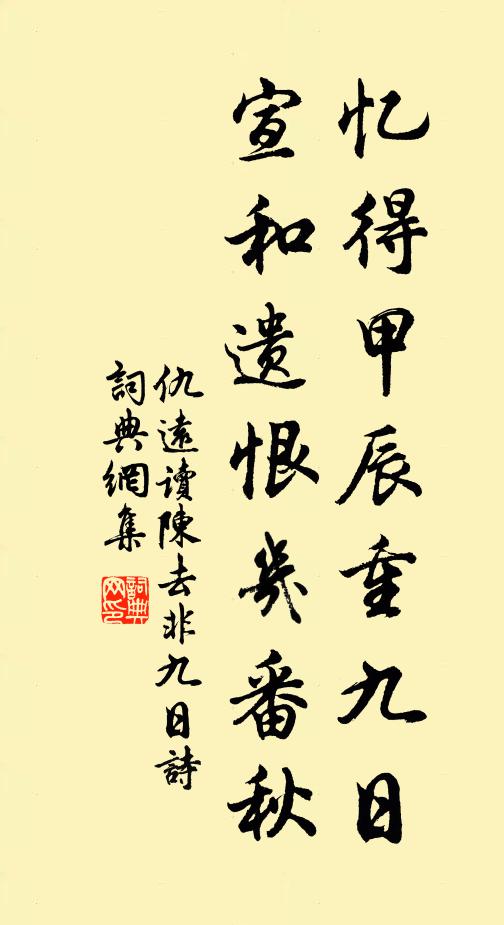 忆得甲辰重九日
宣和遗恨几番秋
仇遠讀陳去非九日詩
詞典網集
詞典网印